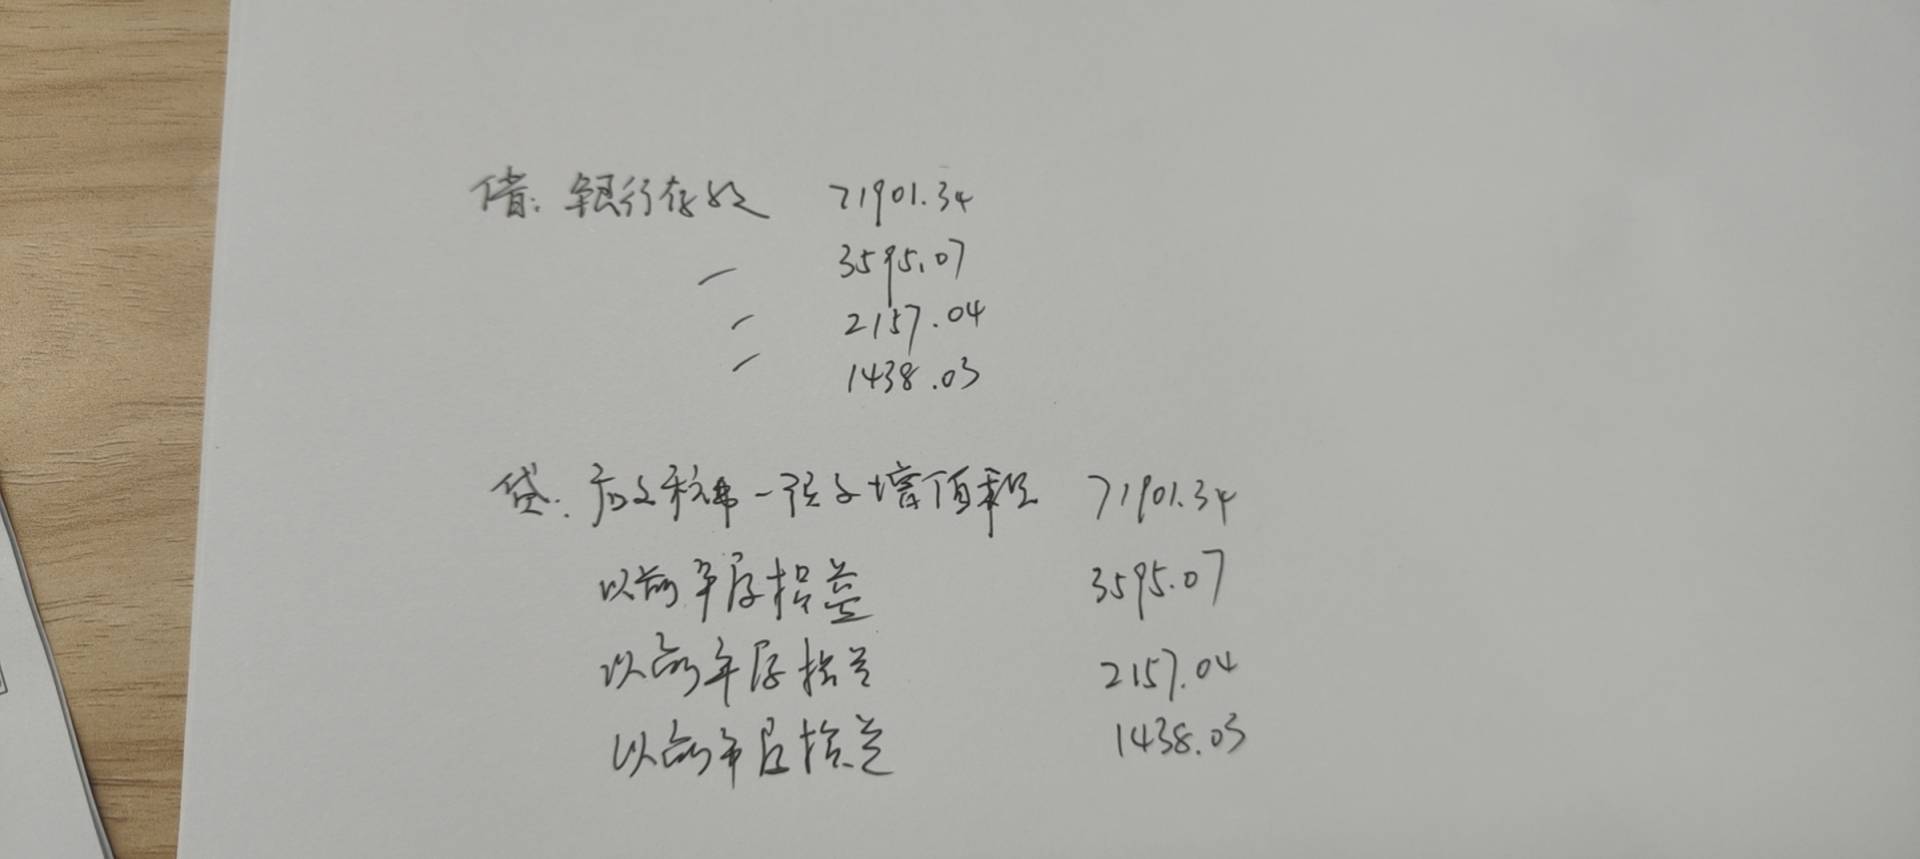 借: 银行存款 71901.34
〃 3595.07
〃 2157.04
〃 1438.03
贷: 应交税费-预交增值税 71901.34
以前年度损益 3595.07
以前年度损益 2157.04
以前年度损益 1438.03